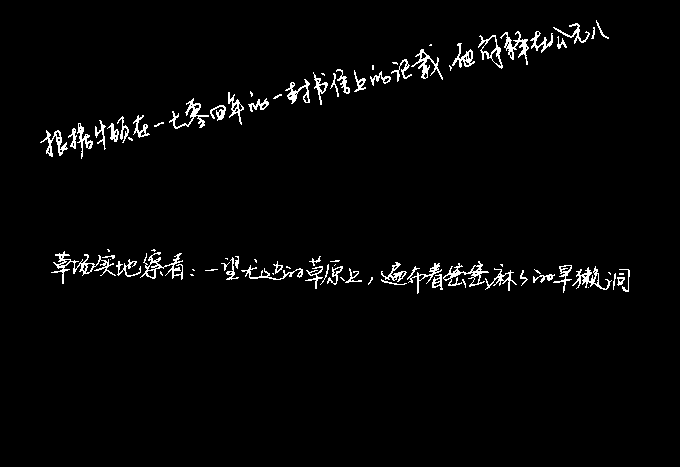 根据牛顿在一七零四年的一封书信上的记载,他解释在公元八
草场实地察看:一望无边的草原上,遍布着密密麻麻的旱獭洞